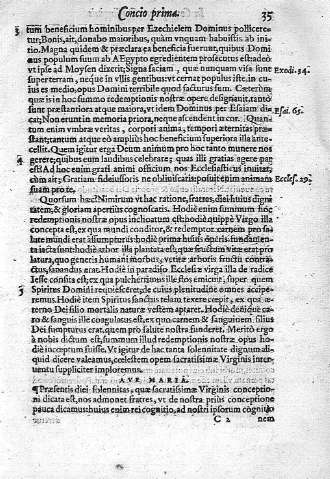 Concio prima. 35
tum beneficium hominibus per Ezechielem Dominus pollicere-
tur, Bonis, ait, donabo maioribus, quàm vnquam habuistis ab ini-
tio. Magna quidem & præclara beneficia fuerunt, quibus Domi-
nus populum suum ab Aegypto egredientem prosecutus est: adeò
vt ipse ad Moysen dixerit; Signa faciam, quæ nunquam visa sunt
super terram, neque in vllis gentibus: vt cernat populus iste, in cu-
ius es medio, opus Domini terribile quod facturus sum. Cæterùm
quæ in hoc summo redemptionis nostræ opere designauit, tantò
sunt præstantiora atque maiora, vt idem Dominus per Esaiam di-
cat; Non erunt in memoria priora, neque ascendent in cor. Quan-
tum enim vmbræ veritas, corpori anima, tempori æternitas præ-
stant; tantum atque eò ampliùs hoc beneficium superiora illa ante-
cellit. Quem igitur erga Deum animum pro hoc tanto munere
gerere; quibus eum laudibus celebrare; quas illi gratias agere par
est? Ad hoc enim grati animi officium nos Ecclesiasticus inuitat,
cùm ait; Gratiam fideiussoris ne obliuiscaris: dedit enim animam
suam pro te.
Exodi. 34.
Esai. 65.
Eccles. 29.
Quorsum hæc? Nimirum vt hac ratione, fratres, diei huius digni
tatem, & gloriam apertiùs cognoscatis. Hodie enim summum hoc
redemptionis nostræ opus inchoatum est: hodie quippe Virgo illa
concepta est, ex qua mundi conditor, & redemptor carnem pro sa-
lute mundi erat assumpturus: hodie prima huius operis fundamen-
ta iacta sunt: hodie arbor illa plantata est, quæ fructum vitæ erat pro
latura, quo generis humani morbus, vetitæ arboris fructu contra-
ctus, sanandus erat. Hodie in paradiso Ecclesiæ virga illa de radice
Iesse consita est; ex qua pulcherrimus ille flos emicuit, super quem
Spiritus Domini requiesceret, & de cuius plenitudine omnes accipe-
remus. Hodie item Spiritus sanctus telam texere cœpit, ex qua æ-
terno Dei filio mortalis naturæ vestem aptaret. Hodie denique ca-
ro & sanguis ille coagulatus est, ex quo carnem & sanguinem filius
Dei sumpturus erat, quem pro salute nostra funderet. Meritò ergo
à nobis dictum est, summum illud redemptionis nostræ opus ho-
die inceptum fuisse. Vt igitur de hac tanta solennitate dignum ali-
quid dicere valeamus, cælestem opem sacratissimæ Virginis inter-
uentu suppliciter imploremus.
AVE MARIA.
Præsentis diei solennitas, quæ sacratissimæ Virginis conceptio-
ni dicata est, nos admonet fratres, vt de nostra priùs conceptione
pauca dicamus: huius enim rei cognitio, ad nostri ipsorum cognitio
C 2 nem